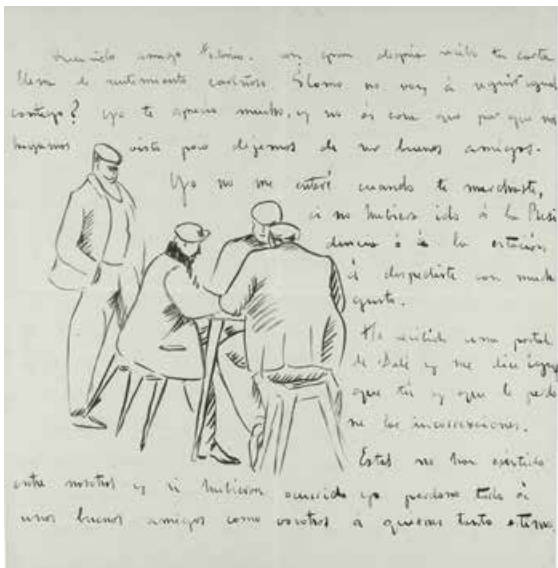 Querido amigo con gran alegría recibo tu carta
llena de sentimiento cariñoso. Cómo no voy á seguir igual
contigo? yo te aprecio mucho, y no es cosa que por que nos
hayamos visto poco dejemos de ser buenos amigos.
Yo no me enteré cuando te marchaste,
si no hubiera ido á la Resi
dencia ó á la estación
á despedirte con mucho
gusto.
He recibido una postal
de Dalí y me dice igual
que tú y que le perdo
ne las incorrecciones.
Estas no han existido
entre nosotros y si hubieran ocurrido yo perdono todo á
unos buenos amigos como vosotros á quienes tanto estimo.